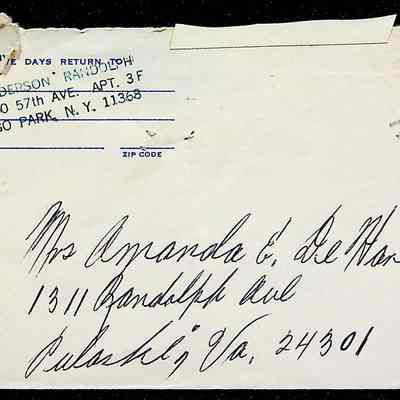 VE DAYS RETURN TO
DERSON RANDOLPH
0 57th AVE. APT. 3F
GO PARK, N. Y. 11368
ZIP CODE
Mrs Amanda E. De Har
1311 Randolph Ave
Pulaski, Va, 24301